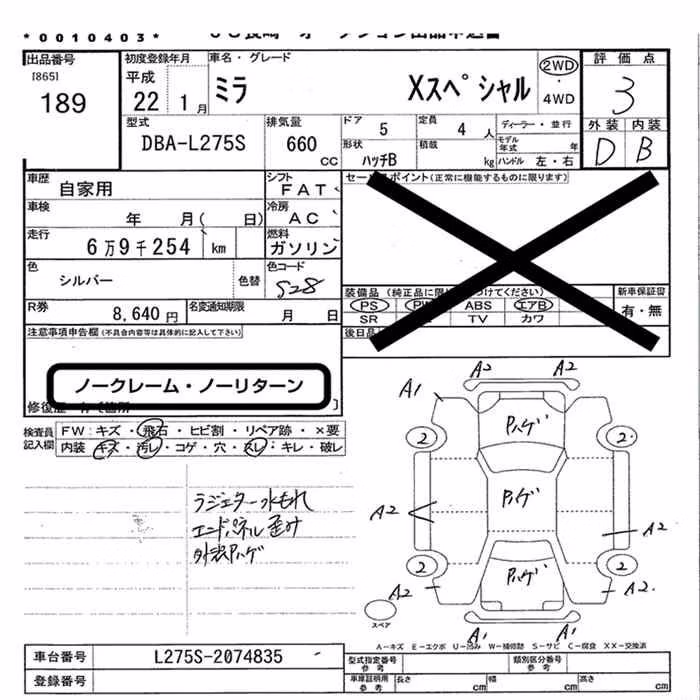 *0010403*
出品番号
[865]
189
初度登録年月
平成
22 1月
車名・グレード
ミラ Xスペシャル
2WD
4WD
評価点
3
外装 内装
D B
型式
DBA-L275S
排気量
660
CC
ドア 5
定員 4 人
ディーラー・並行
モデル年式 年
形状
ハッチB
積載 kg
ハンドル 左・右
車歴
自家用
シフト
FAT
車検
年 月( 日)
冷房
AC
走行
6万9千254 km
燃料
ガソリン
色
シルバー
色替
色コード
S28
R券
8,640円
名変通知期限
月 日
セールスポイント(正常に機能するものに限ります)
装備品 (純正品に限り つけてください)
PS PW ABS エアB
SR TV カワ
新車保証書
有・無
後日品
注意事項申告欄(不具合内容等は具体的に記入して下さい)
ノークレーム・ノーリターン
検査員
記入欄
FW:キズ・飛石・ヒビ割・リペア跡・×要
内装:キズ・汚レ・コゲ・穴・スレ・キレ・破レ
ラジエター水もれ
エンドパネル歪み
外装ハゲ
A2 A2
A1
ハゲ
2 2
ハゲ
A2 A2
2 2
ハゲ
A2 A2
A1 A1
スペア
A-キズ E-エクボ U-凹み W-補修跡 S-サビ C-腐食 XX-交換済
車台番号
L275S-2074835
登録番号
型式指定番号
参考
類別区分番号
参考
車庫証明用
参考
長さ cm 幅 cm 高さ cm